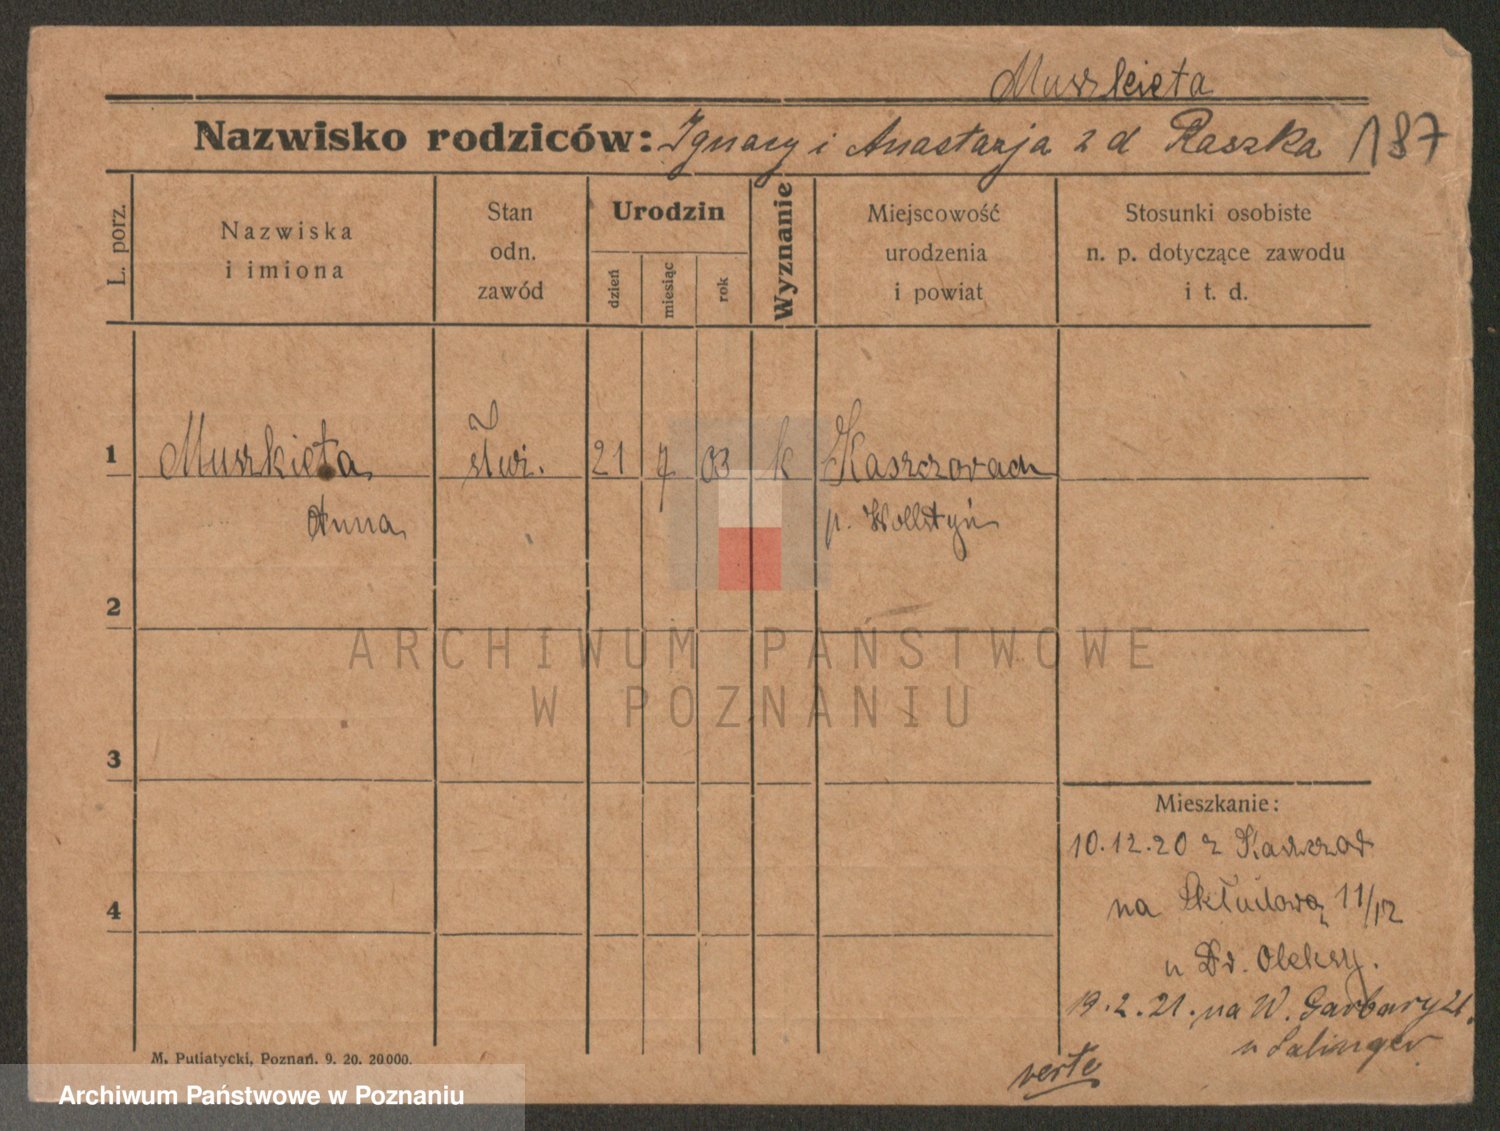 Muszkieta
Nazwisko rodziców: Ignacy i Anastazja z d Raszka 187
L. porz.
Nazwiska
i imiona
Stan
odn.
zawód
Urodzin
dzień
miesiąc
rok
Wyznanie
Miejscowość
urodzenia
i powiat
Stosunki osobiste
n. p. dotyczące zawodu
i t. d.
1 Muszkieta służ. 21 7 03 k Kaszczorach
Anna p. Wollstyn
2
ARCHIWUM PAŃSTWOWE
W POZNANIU
3
Mieszkanie:
10.12.20 z
na 11/12
4
u Dr. Oleksy.
19.2.21. na W. Garbary 21.
u Salinger
verte
M. Putiatycki, Poznań. 9. 20. 20000.
Archiwum Państwowe w Poznaniu